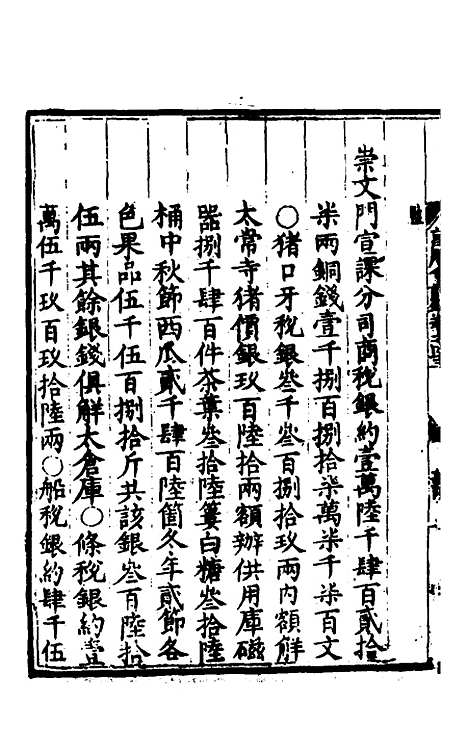 崇文門宣課分司商稅銀約壹萬陸千肆百貳拾
柒兩銅錢壹千捌百捌拾柒萬柒千柒百文
○猪口牙稅銀叁千叁百捌拾玖兩内額解
太常寺猪價銀玖百陸拾兩額辦供用庫磁
器捌千肆百件茶葉叁拾陸簍白糖叁拾陸
桶中秋節西瓜貳千肆百陸箇冬年貳節各
色果品伍千伍百捌拾斤共該銀叁百陸拾
伍兩其餘銀錢俱解太倉庫○條稅銀約壹
萬伍千玖百玖拾陸兩○船稅銀約肆千伍